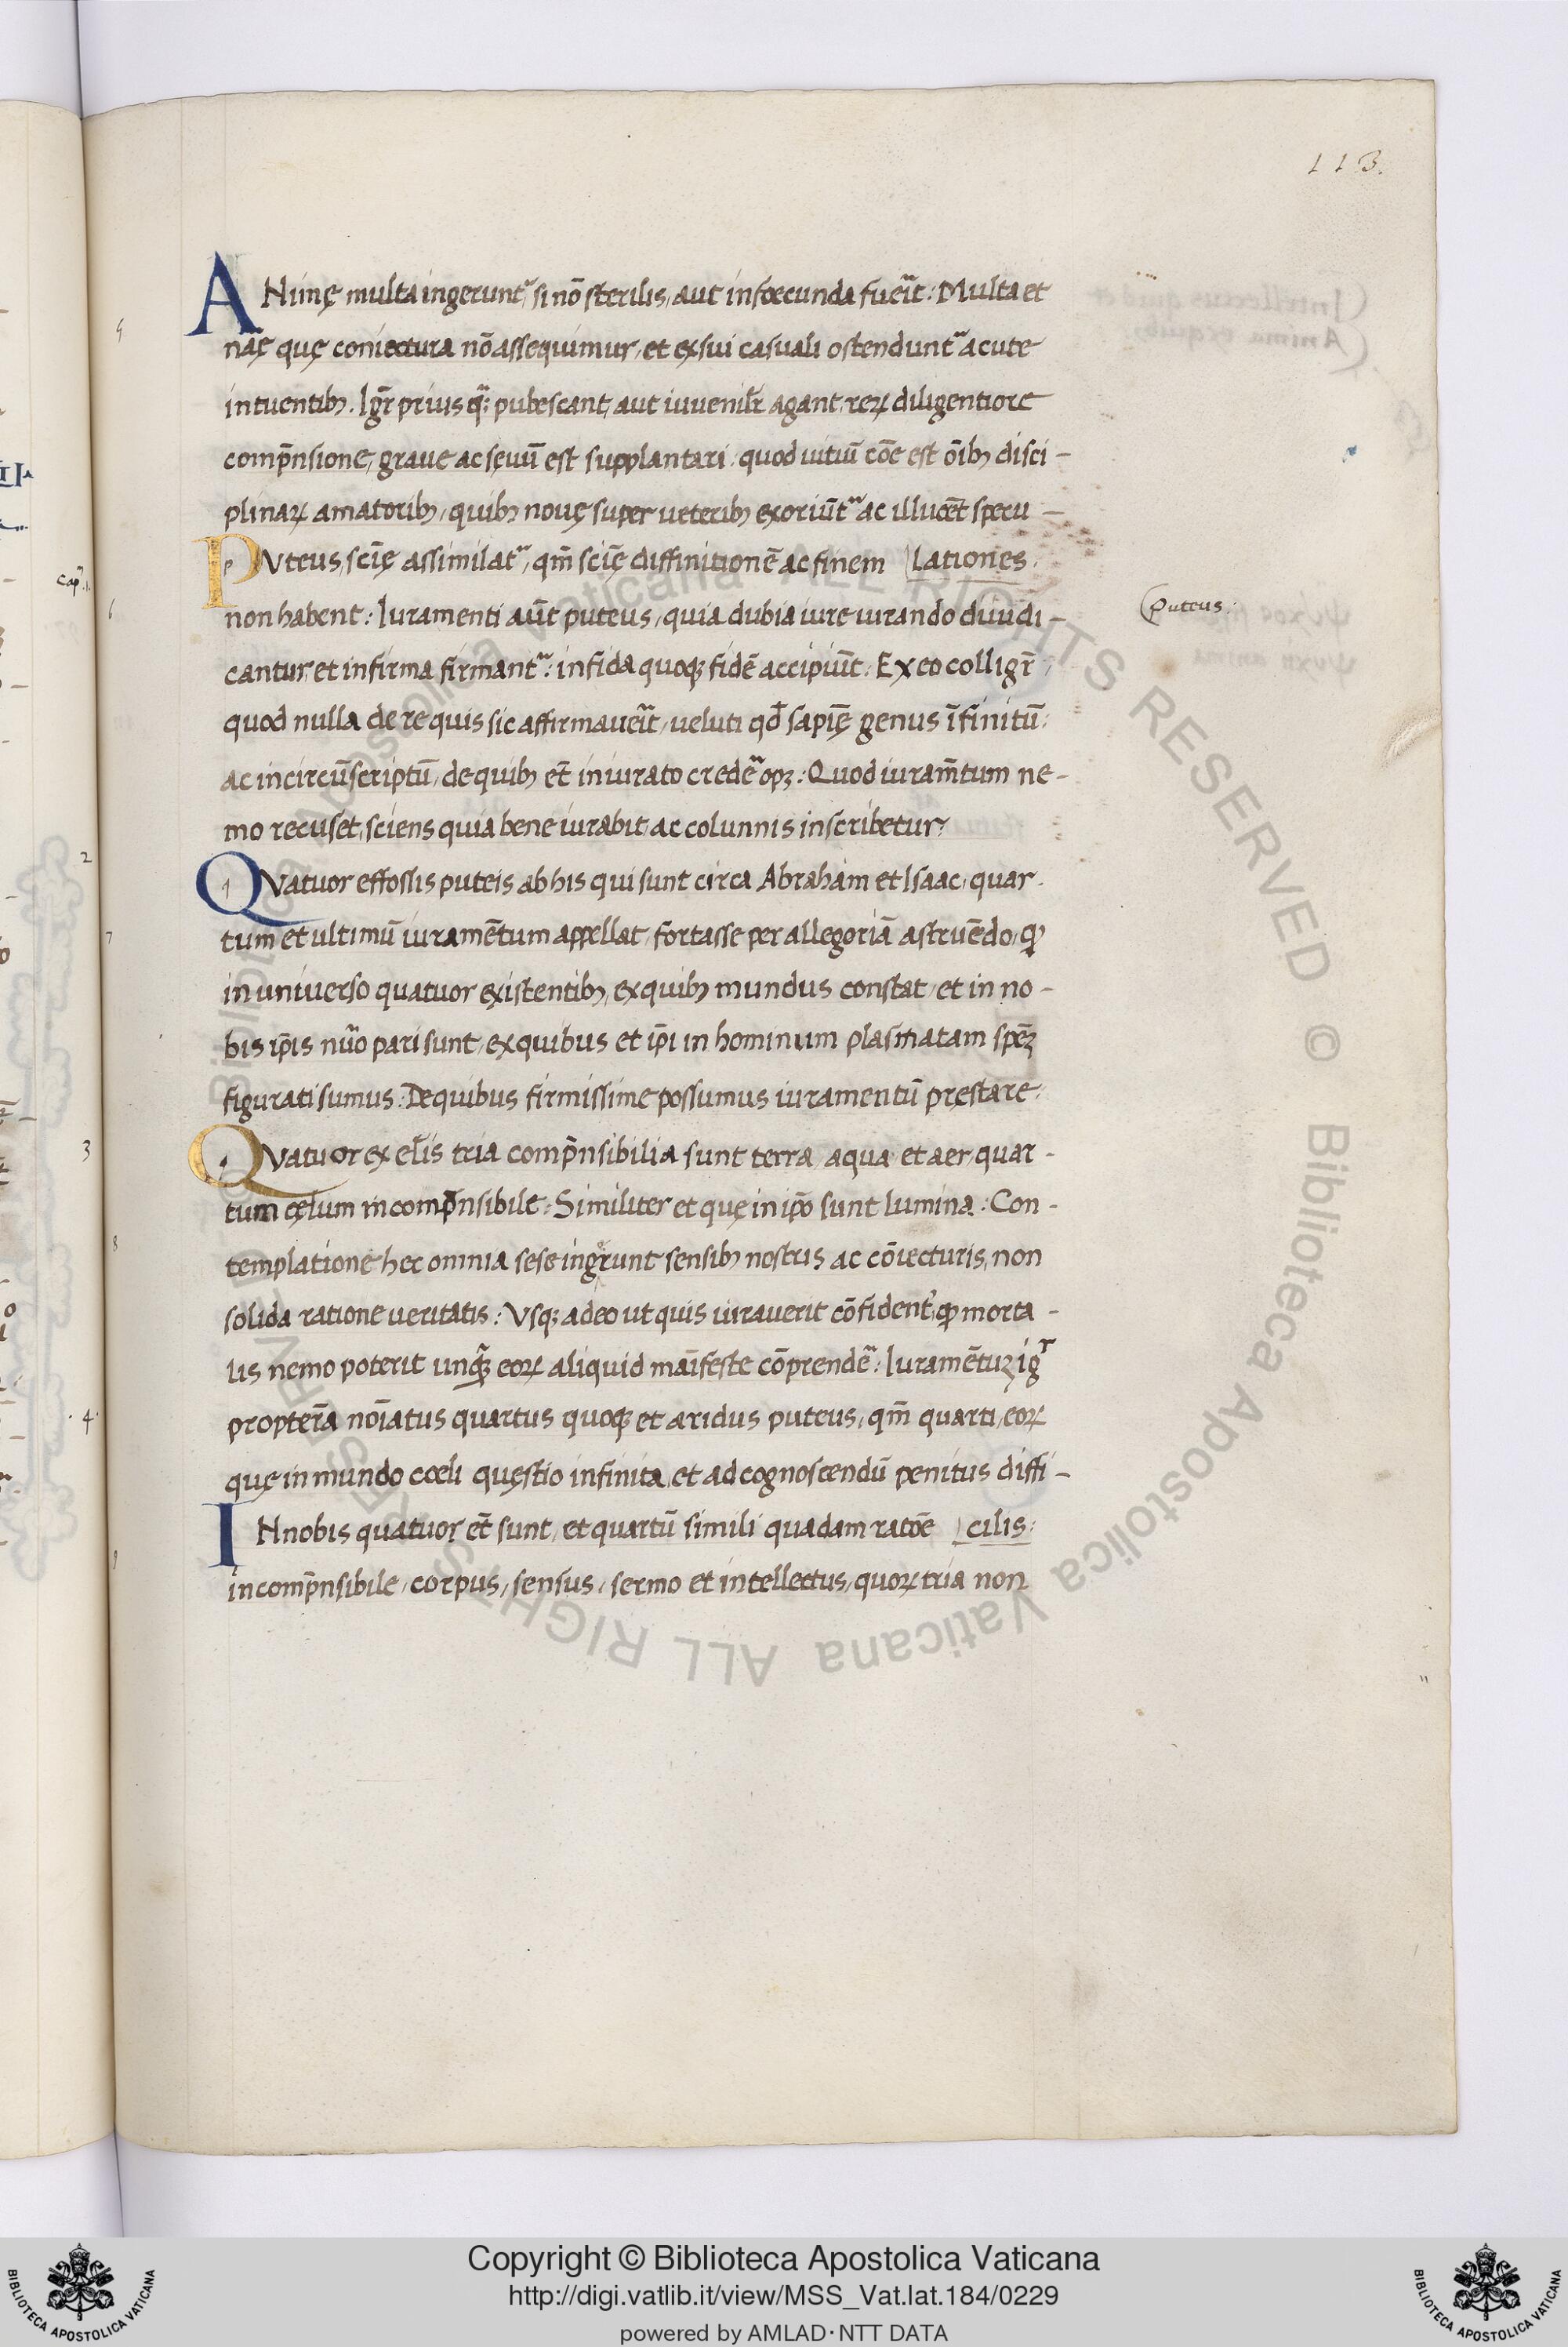 113.
ANimę multa ingerunt᷑ si nō sterilis, aut infoecunda fuerit: Multa et
nāę quę coniectura nō assequimur, et ex sui casuali ostendunt᷑ acute
intuentibꝫ. Igr̄ prius qꝫ pubescant, aut iuvenilr̄ agant, reꝝ diligentiore
comp̄nsione, graue ac sęuū est supplantari, quod uitiū cōe est ōibꝫ disci-
plinaꝝ amatoribꝫ, quibꝫ nouę super ueteribꝫ exoriūt᷑ ac illucēt specu-
PVteus, scīę assimilat᷑, qm̄ scīę diffinitionē ac finem lationes.
non habent: Iuramenti aūt puteus, quia dubia iure iurando diiudi-
cantur et infirma firmant᷑: infida quoqꝫ fidē accipiūt. Ex eo colligr̄,
quod nulla de re quis sic affirmauerit, ueluti qd̄ sapīę genus īfinitū:
ac incircūscriptū, de quibꝫ et̄ iniurato credē opꝫ: Quod iuram̄tum ne-
mo recuset, sciens quia bene iurabit, ac colunnis inscribetur.
QVatuor effossis puteis ab his qui sunt circa Abraham et Isaac, quar-
tum et ultimū iuramētum appellat, fortasse per allegoriā astruēdo, ꝙ
in universo quatuor existentibꝫ, ex quibꝫ mundus constat, et in no-
bis ip̄is nūo pari sunt, ex quibus et ip̄i in hominum plasmatam spēꝫ
figurati sumus: De quibus firmissime possumus iuramentū pręstare:
QVatuor ex el̄is tria comp̄nsibilia sunt terra, aqua et aer, quar-
tum cęlum incomp̄nsibile: Similiter et quę in ip̄o sunt lumina: Con-
templatione hec omnia sese ingrunt sensibꝫ nostris ac cōiecturis, non
solida ratione ueritatis: Vsqꝫ adeo ut quis iurauerit cōfident̄, ꝙ morta-
lis nemo poterit unqꝫ eoꝝ aliquid maīfeste cōprendē: Iuramētuꝫ igr
propterā noīatus quartus quoqꝫ et aridus puteus, qm̄ quarti, eoꝝ
quę in mundo coeli quęstio infinita, et ad cognoscendū penitus diffi-
INnobis quatuor et̄ sunt, et quartū simili quadam ratōe cilis:
incomp̄nsibile, corpus, sensus, sermo et intellectus, quoꝝ tria non
puteus:
capᵐ.1.
5
6
7
8
9
2
3
4
Copyright © Biblioteca Apostolica Vaticana
http://digi.vatlib.it/view/MSS_Vat.lat.184/0229
powered by AMLAD·NTT DATA
BIBLIOTECA APOSTOLICA VATICANA
BIBLIOTECA APOSTOLICA VATICANA